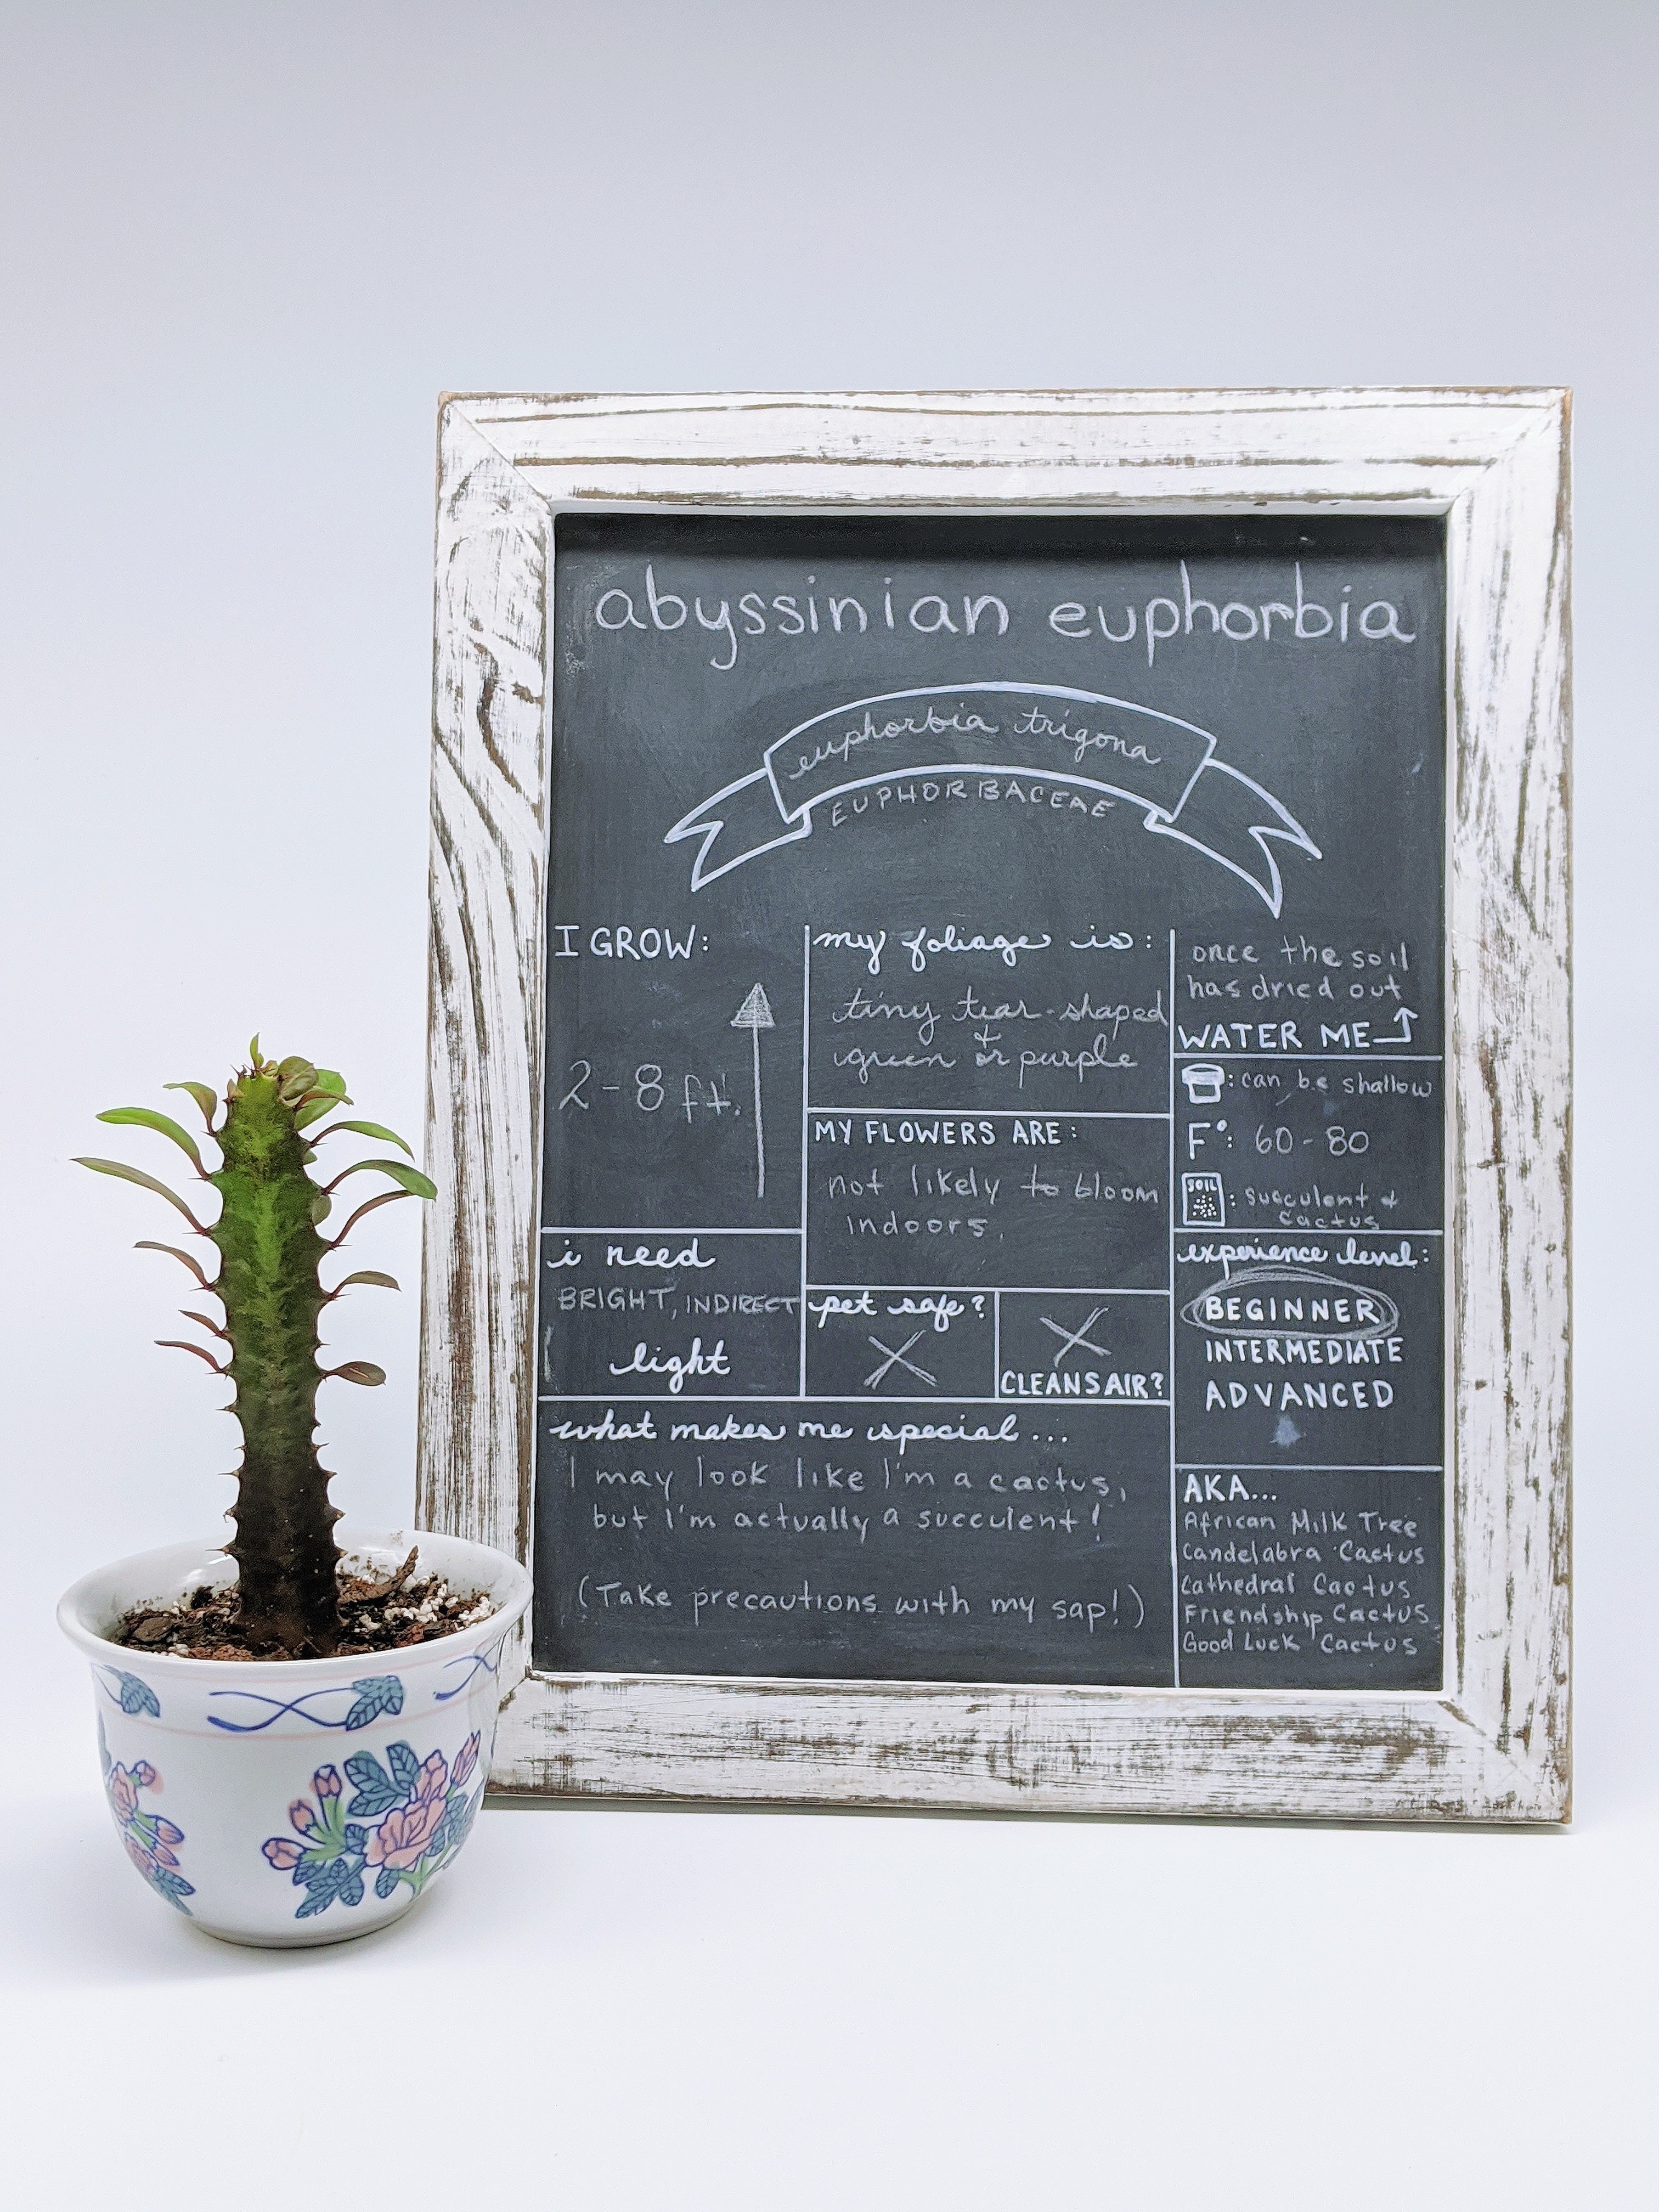 abyssinian euphorbia
euphorbia trigona
EUPHORBACEAE
I GROW:
2-8 ft.
i need
BRIGHT, INDIRECT
light
my foliage is:
tiny tear-shaped
green + or purple
MY FLOWERS ARE:
not likely to bloom
indoors.
pet safe?
X
X
CLEANS AIR?
what makes me special...
I may look like I'm a cactus,
but I'm actually a succulent!
(Take precautions with my sap!)
once the soil
has dried out
WATER ME
: can be shallow
F°: 60-80
SOIL
: succulent &
cactus
experience level:
BEGINNER
INTERMEDIATE
ADVANCED
AKA...
African Milk Tree
Candelabra Cactus
Cathedral Cactus
Friendship Cactus
Good Luck Cactus